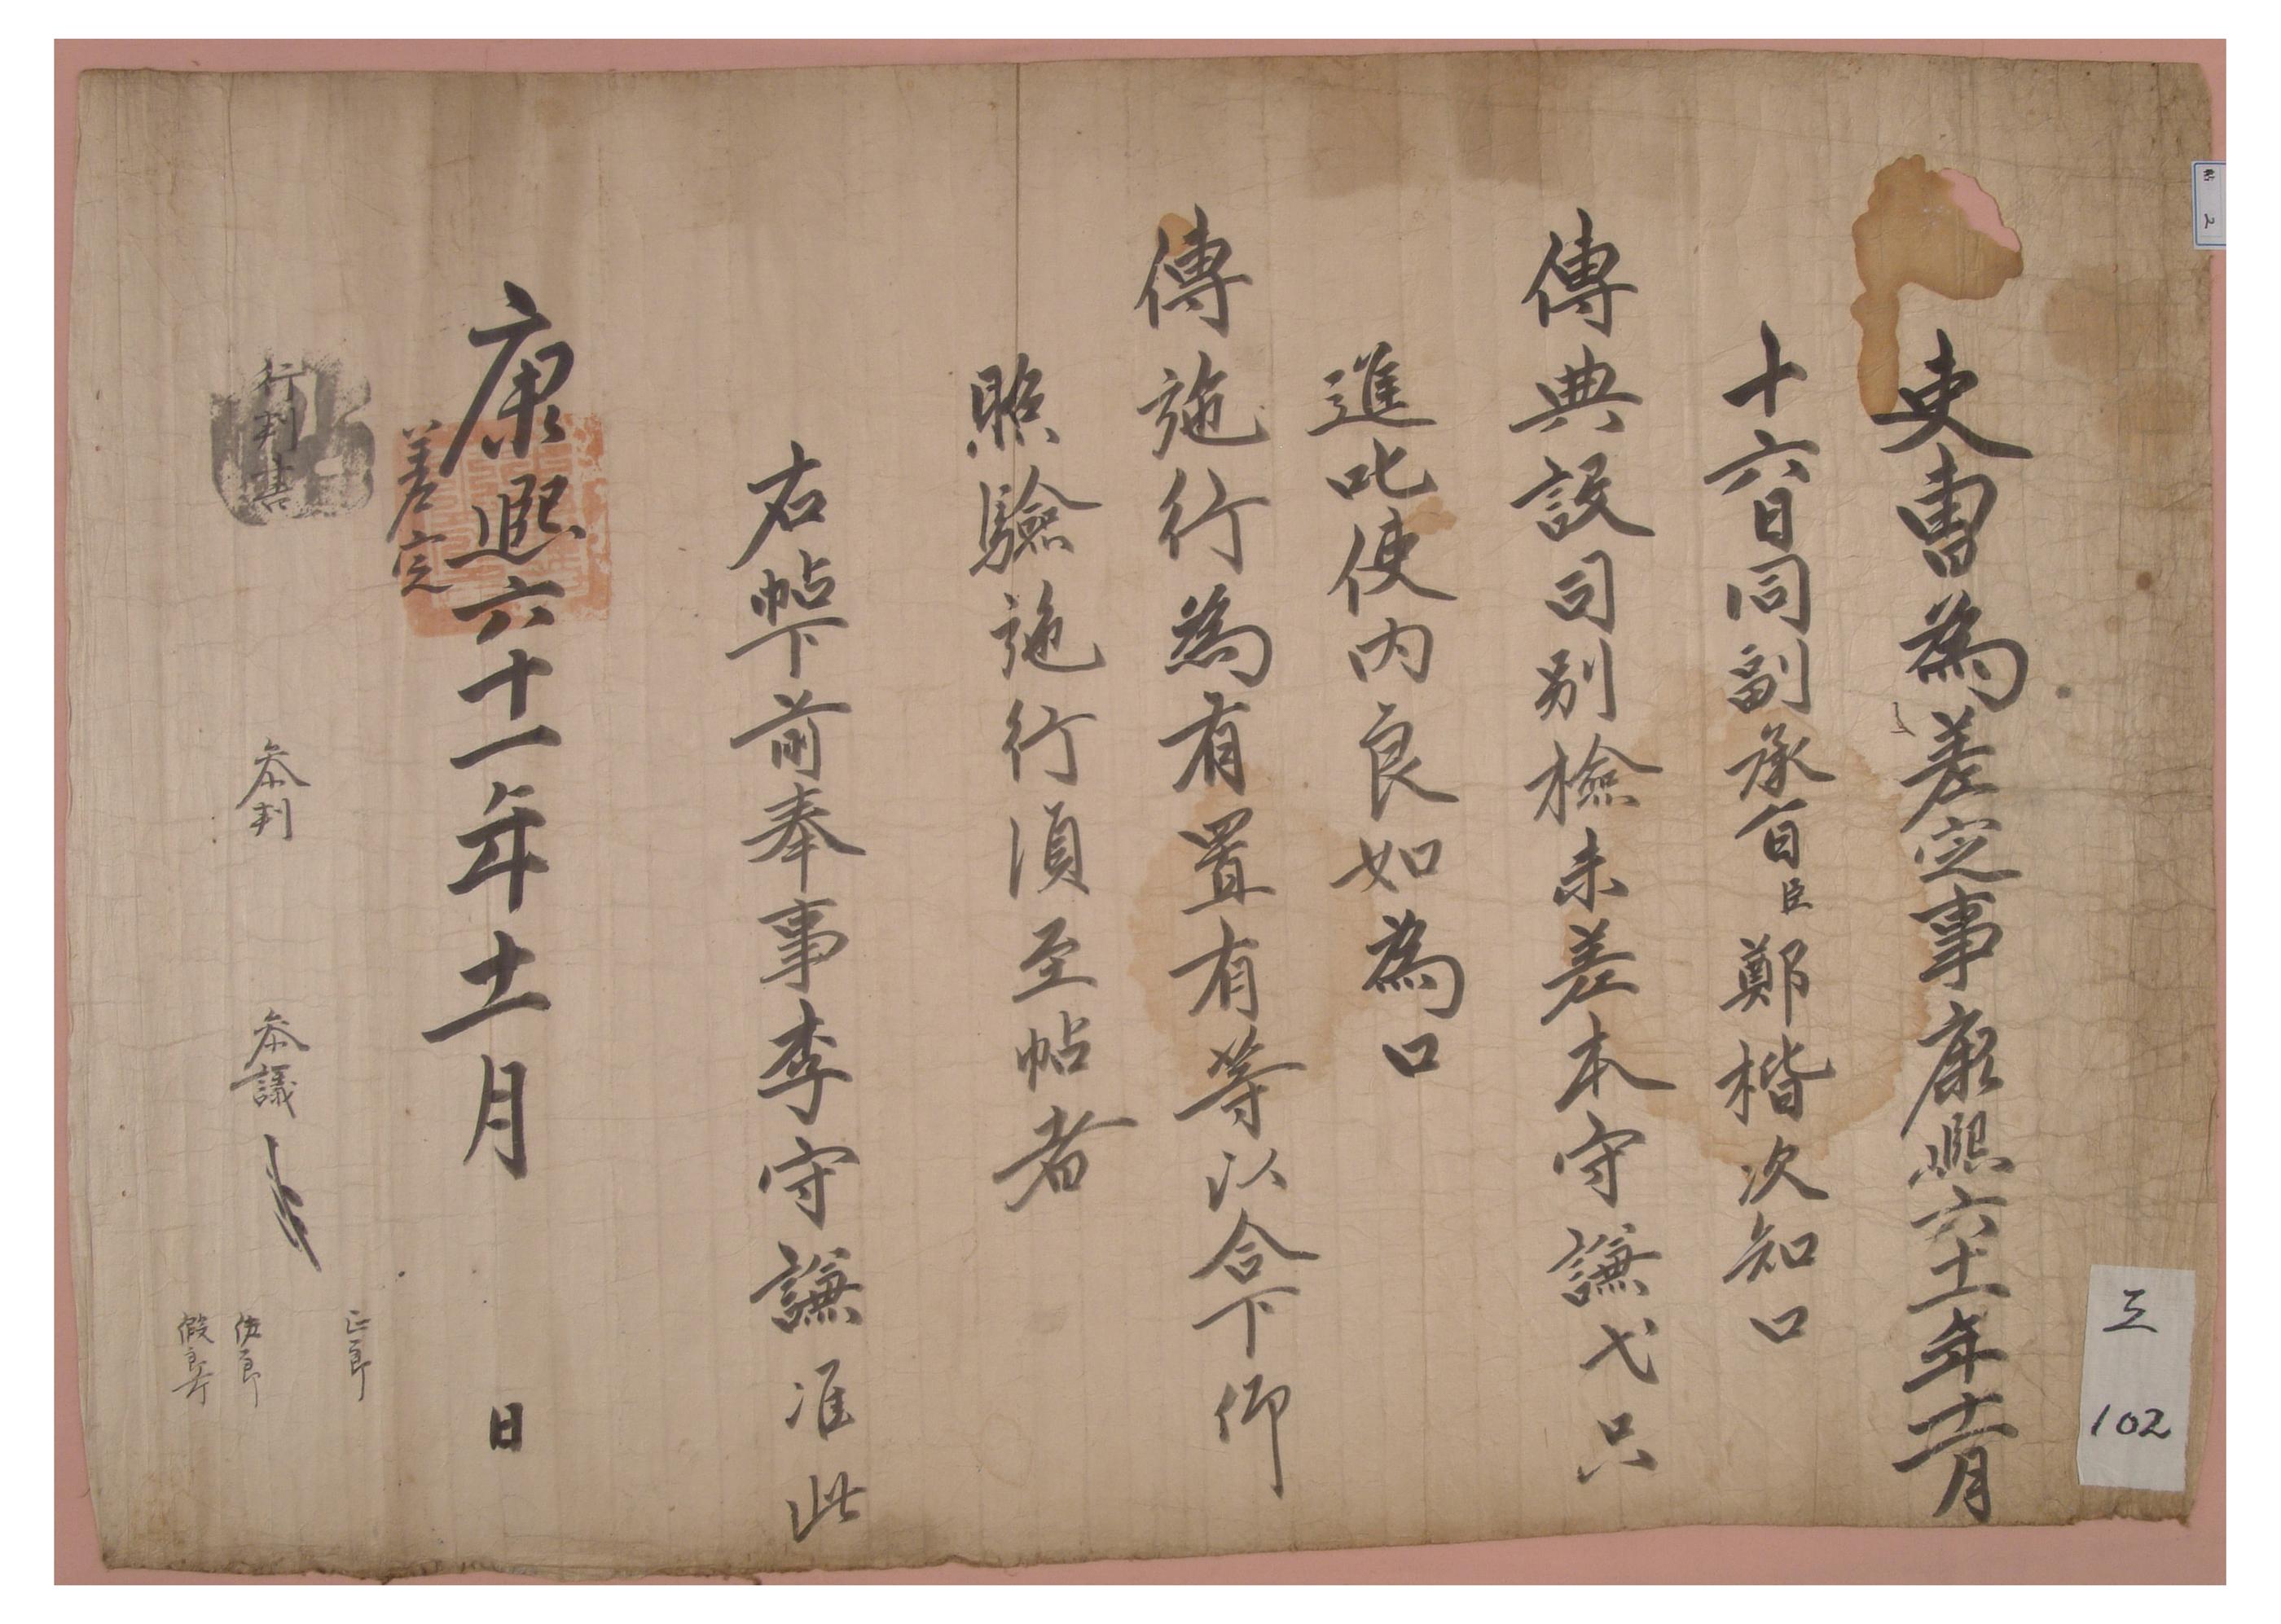 吏曹為差定事康熙六十一年十一月
十六日同副承旨臣鄭楷次知口
傳典設司別檢未差本守謙弋只
進叱使內良如為口
傳施行為有置有等以合下仰
照驗施行須至帖者
右帖下前奉事李守謙准此
康熙六十一年十一月 日
差定
行判書
參判
參議
正郎
佐郎
假郎廳
帖 2
三
102